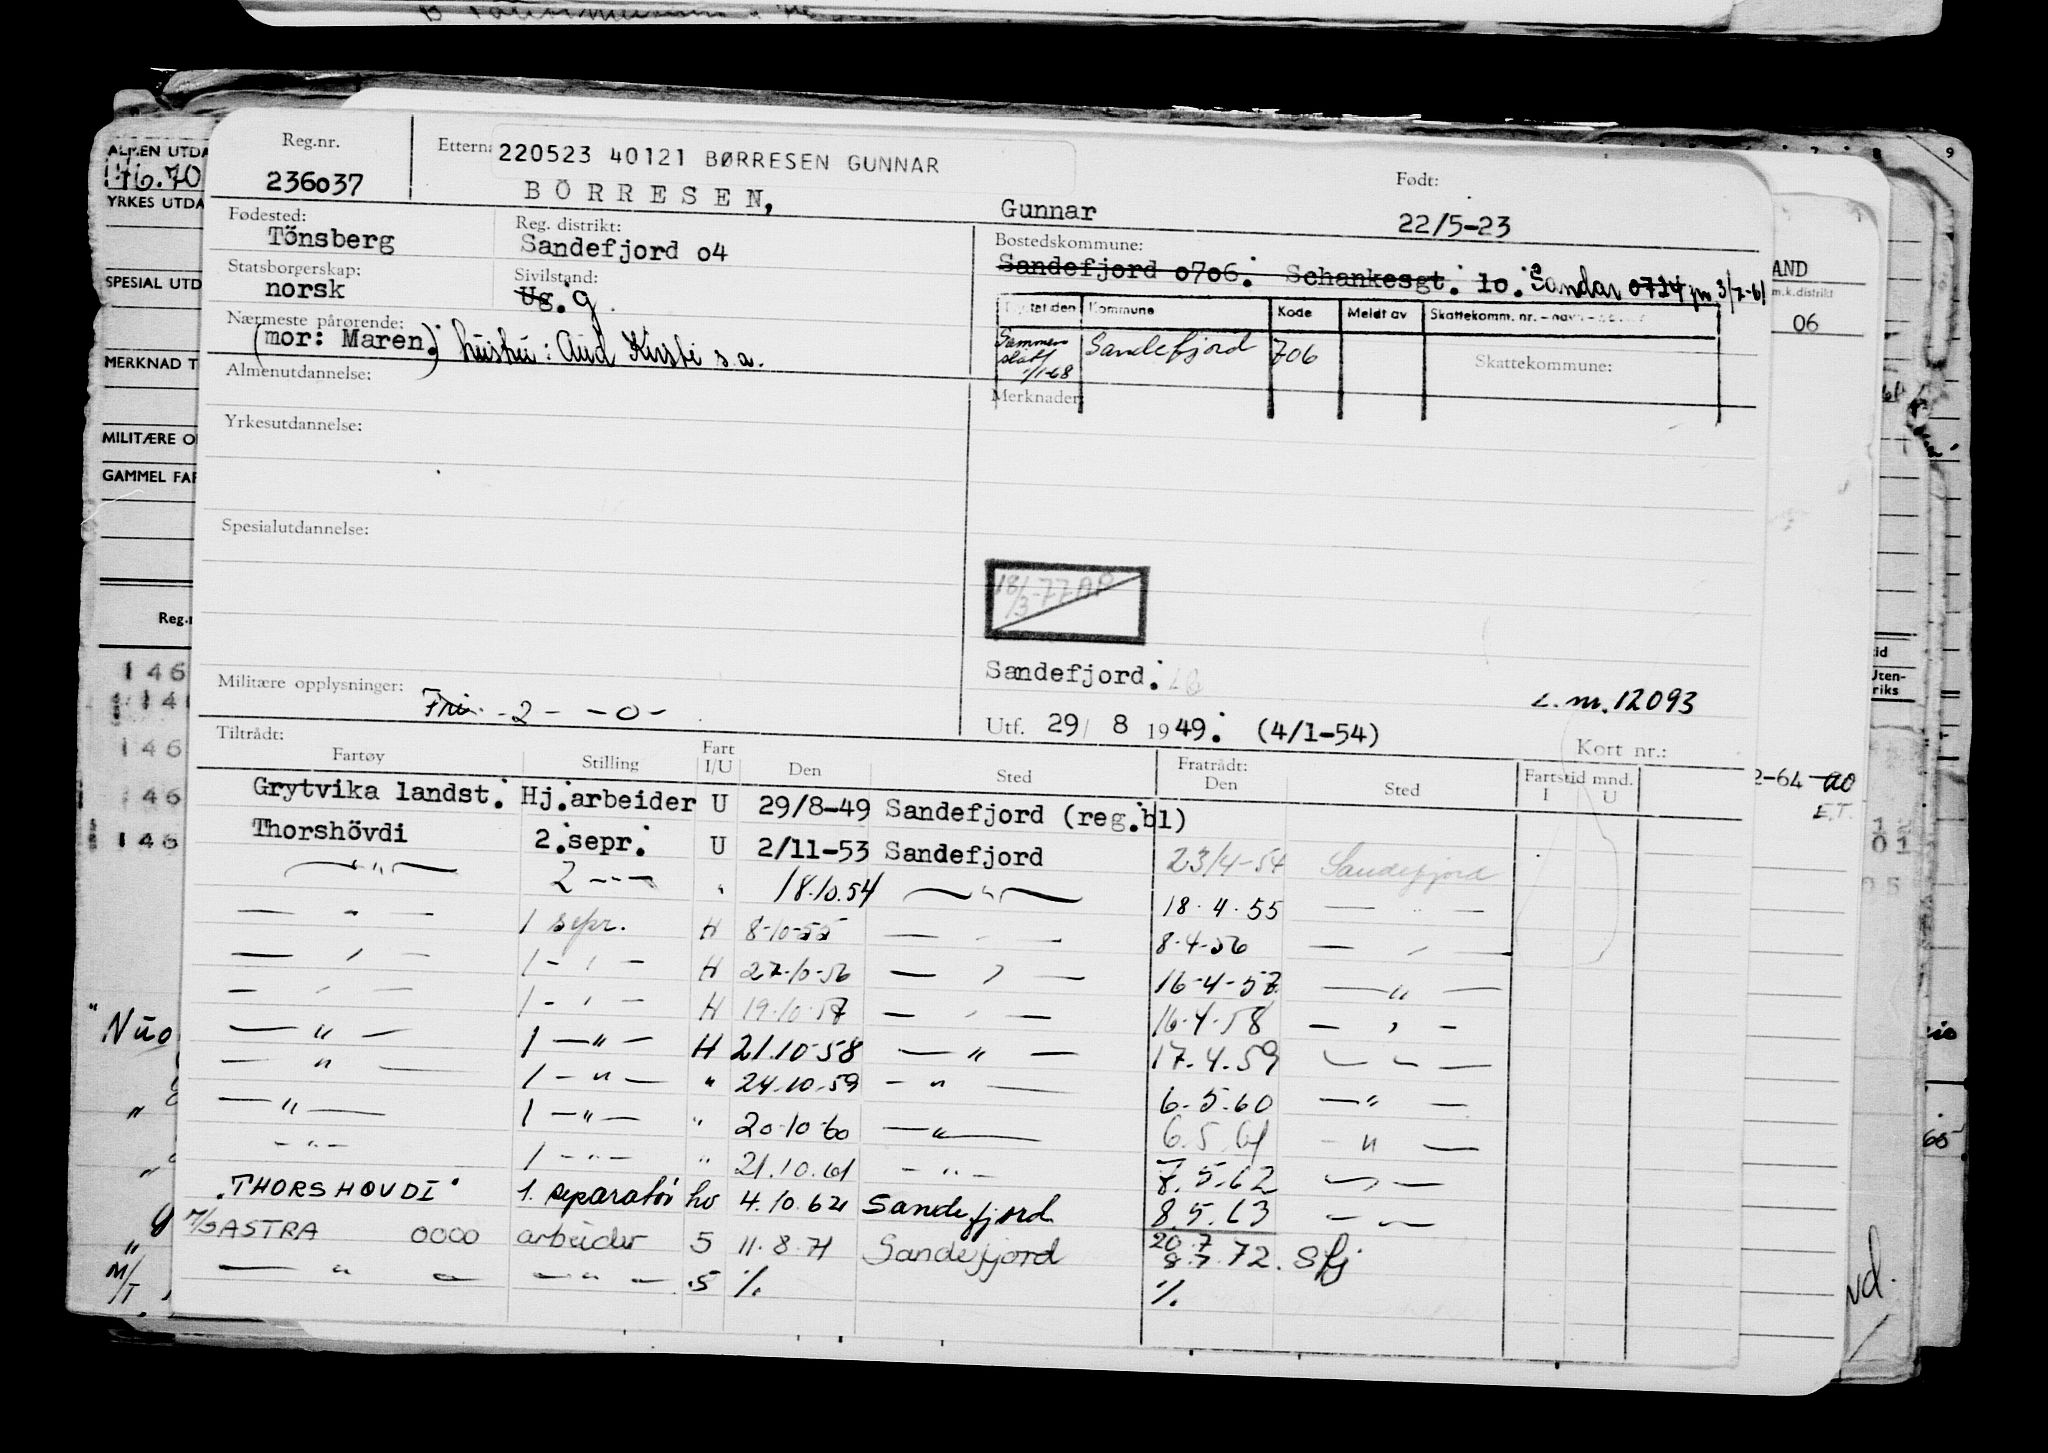 Reg.nr.
236o37
220523 40121 BØRRESEN GUNNAR
BÖRRESEN,
Gunnar
Født:
22/5-23
Fødested:
Tönsberg
Reg. distrikt:
Sandefjord o4
Bostedskommune:
Sandefjord o7o6. Schankesgt. 1o. Sandar 0724
Statsborgerskap:
norsk
Sivilstand:
Ug. g.
Nærmeste pårørende:
(mor: Maren.) hustru: Aud Kirsti s.a.
Kommune Kode Meldt av
Sammen slått 1/1-68 Sandefjord 706
Skattekommune:
Almenutdannelse:
Merknader:
Yrkesutdannelse:
Spesialutdannelse:
18/3-77
Sandefjord.
Militære opplysninger:
Fri. -2- -0-
L.m. 12093
Utf. 29/ 8 1949. (4/1-54)
Kort nr.:
Tiltrådt:
Fartøy Stilling Fart I/U Den Sted
Fratrådt: Den Sted
Fartstid mnd. I U
Grytvika landst. Hj.arbeider U 29/8-49 Sandefjord (reg.bl)
Thorshövdi 2.sepr. U 2/11-53 Sandefjord 23/4-54 Sandefjord
— " — 2 - - - " 18.10.54 — " — 18.4.55 — " —
— " — 1 sepr. H 8-10-55 — " — 8-4-56 — " —
— " — 1 - " - H 27-10-56 — " — 16-4-57 — " —
— " — 1 - " - H 19.10.57 — " — 16.4.58 — " —
— " — 1 — " — H 21.10-58 — " — 17.4.59 — " —
— " — 1 - " - " 24.10.59 — " — 6.5.60 — " —
— " — 1 — " — " 20-10-60 — " — 6.5.61 — " —
- " - 1 - " - " 21.10.61 - " - 7.5.62 — " —
"THORSHØVDI" 1. separatør hv 4.10.62 Sandefjord 8.5.63 — " —
M/S ASTRA 0000 arbeider 5 11.8.71 Sandefjord 20.7 8.7.72. Sfj
— " — — " — 5 %. %.
ALMEN UTDA
146.70
YRKES UTDA
SPESIAL UTD
MERKNAD T
MILITÆRE O
GAMMEL FAR
Reg.n
146
146
146
146
146
"Nuo
"
"
"
M/T
AND
m.k.distrikt
06
2-64
E.T.
tid
Uten-
riks
01
05
vd.
9